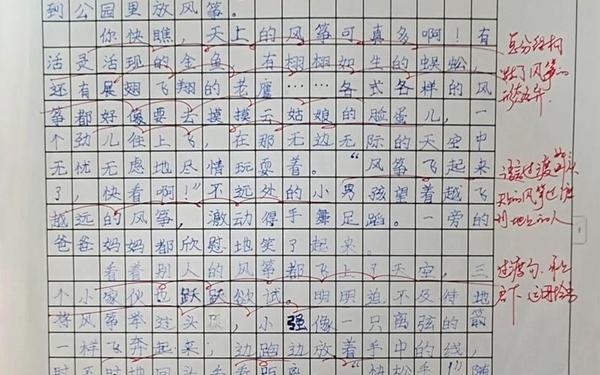 到公园里放风筝。
你快瞧，天上的风筝可真多啊！有
活灵活现的金鱼，有栩栩如生的蜈蚣，
还有展翅飞翔的老鹰……各式各样的风
筝都好像要去摸摸云姑娘的脸蛋儿，一
个劲儿往上飞，在那无边无际的天空中
无忧无虑地尽情玩耍着。“风筝飞起来
了，快看啊！”不远处的小男孩望着越飞
越远的风筝，激动得手舞足蹈。一旁的
爸爸妈妈都欣慰地笑了起来。
看着别人的风筝都飞上了天空，三
个小家伙也跃跃欲试。明明迫不及待地
将风筝举过头顶，小强像一只离弦的箭
一样飞奔起来，边跑边放着手中的线，
时不时地回头看看距离。“快松手！”随
总分结构
过渡句